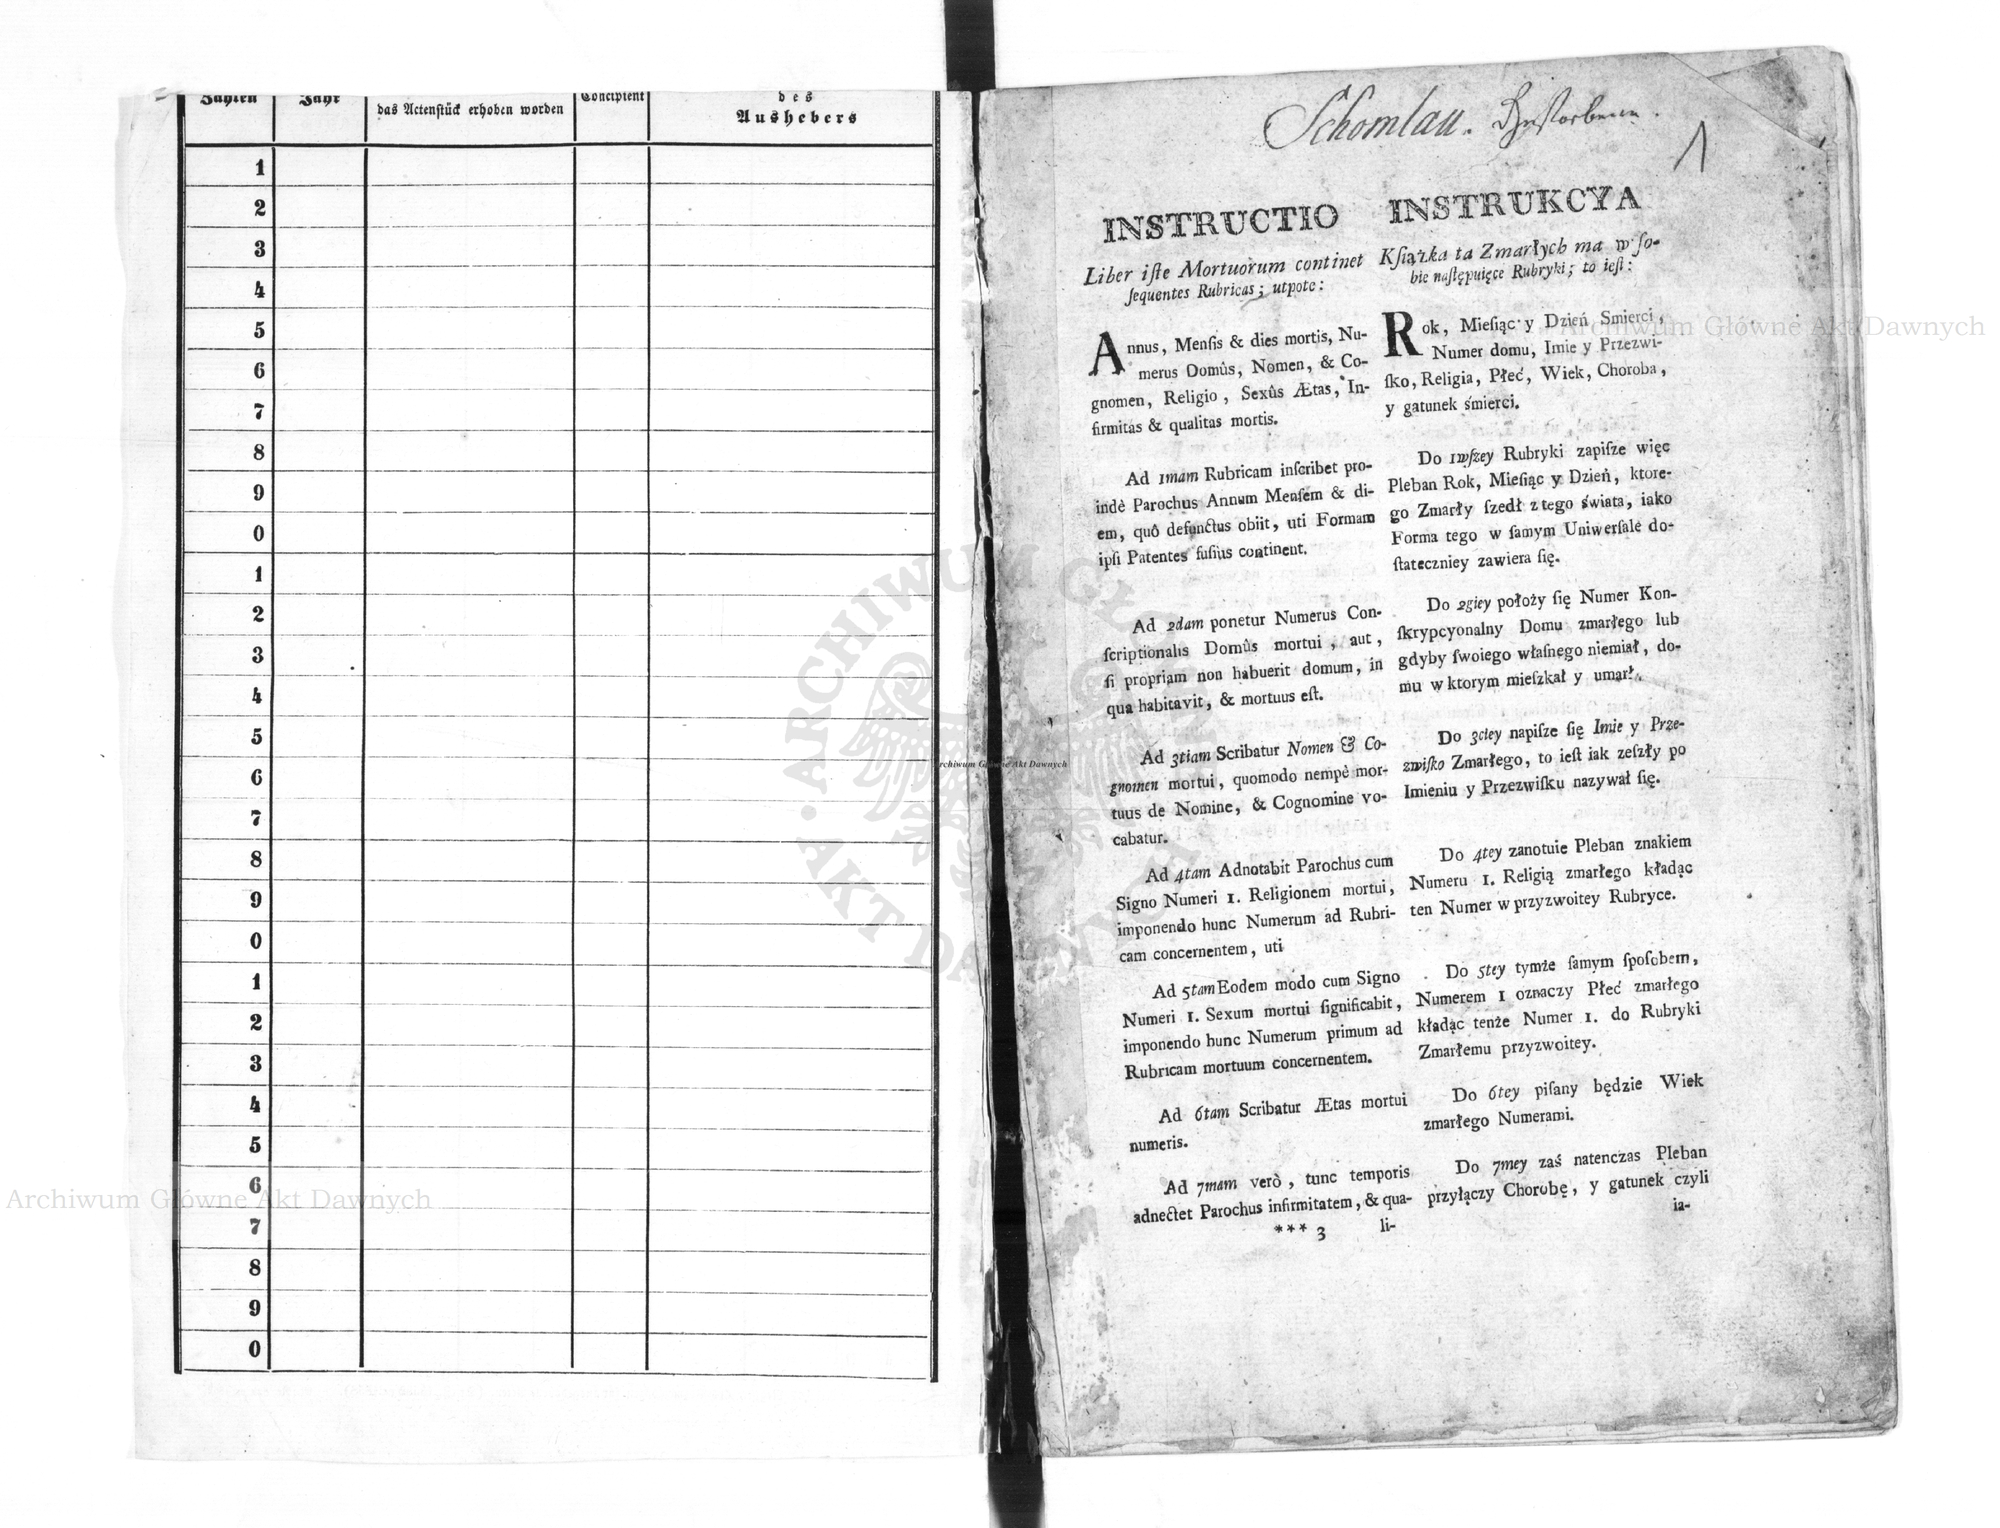 Zahlen
Jahr
das Actenstück erhoben worden
Concipient
des
Aushebers
1
2
3
4
5
6
7
8
9
0
1
2
3
4
5
6
7
8
9
0
1
2
3
4
5
6
7
8
9
0
Schomlau.
1
INSTRUCTIO
Liber iſte Mortuorum continet
ſequentes Rubricas; utpote:
Annus, Menſis & dies mortis, Nu-
merus Domûs, Nomen, & Co-
gnomen, Religio, Sexûs Ætas, In-
firmitas & qualitas mortis.
Ad 1mam Rubricam inſcribet pro-
indè Parochus Annum Menſem & di-
em, quô defunctus obiit, uti Formam
ipſi Patentes fuſius continent.
Ad 2dam ponetur Numerus Con-
ſcriptionalis Domûs mortui, aut,
ſi propriam non habuerit domum, in
qua habitavit, & mortuus eſt.
Ad 3tiam Scribatur Nomen & Co-
gnomen mortui, quomodo nempè mor-
tuus de Nomine, & Cognomine vo-
cabatur.
Ad 4tam Adnotabit Parochus cum
Signo Numeri 1. Religionem mortui,
imponendo hunc Numerum ad Rubri-
cam concernentem, uti
Ad 5tam Eodem modo cum Signo
Numeri 1. Sexum mortui ſignificabit,
imponendo hunc Numerum primum ad
Rubricam mortuum concernentem.
Ad 6tam Scribatur Ætas mortui
numeris.
Ad 7mam verò, tunc temporis
adnectet Parochus infirmitatem, & qua-
*** 3 li-
INSTRUKCYA
Kſiążka ta Zmarłych ma w ſo-
bie naſtępuięce Rubryki; to ieſt:
Rok, Mieſiąc y Dzień Smierci,
Numer domu, Imie y Przezwi-
ſko, Religia, Płeć, Wiek, Choroba,
y gatunek śmierci.
Do 1wſzey Rubryki zapiſze więc
Pleban Rok, Mieſiąc y Dzień, ktore-
go Zmarły ſzedł z tego świata, iako
Forma tego w ſamym Uniwerſale do-
ſtateczniey zawiera ſię.
Do 2giey położy ſię Numer Kon-
ſkrypcyonalny Domu zmarłego lub
gdyby ſwoiego właſnego niemiał, do-
mu w ktorym mieſzkał y umarł.
Do 3ciey napiſze ſię Imie y Prze-
zwiſko Zmarłego, to ieſt iak zeſzły po
Imieniu y Przezwiſku nazywał ſię.
Do 4tey zanotuie Pleban znakiem
Numeru 1. Religią zmarłego kładąc
ten Numer w przyzwoitey Rubryce.
Do 5tey tymże ſamym ſpoſobem,
Numerem 1 oznaczy Płeć zmarłego
kładąc tenże Numer 1. do Rubryki
Zmarłemu przyzwoitey.
Do 6tey piſany będzie Wiek
zmarłego Numerami.
Do 7mey zaś natenczas Pleban
przyłączy Chorobę, y gatunek czyli
ia-
Archiwum Główne Akt Dawnych
Archiwum Główne Akt Dawnych
Archiwum Główne Akt Dawnych
ARCHIWUM GŁÓWNE AKT DAWNYCH